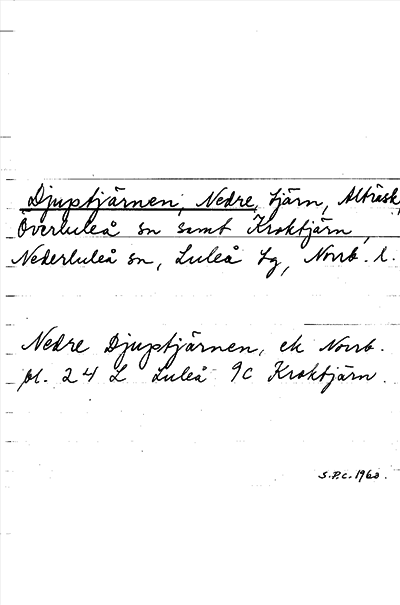 Djuptjärnen, Nedre, tjärn, Alträsk,
Överluleå sn samt Kroktjärn,
Nederluleå sn, Luleå tg, Norrb. l.
Nedre Djuptjärnen, ek Norrb.
bl. 24 L Luleå 9c Kroktjärn.
S.P.C. 1960.